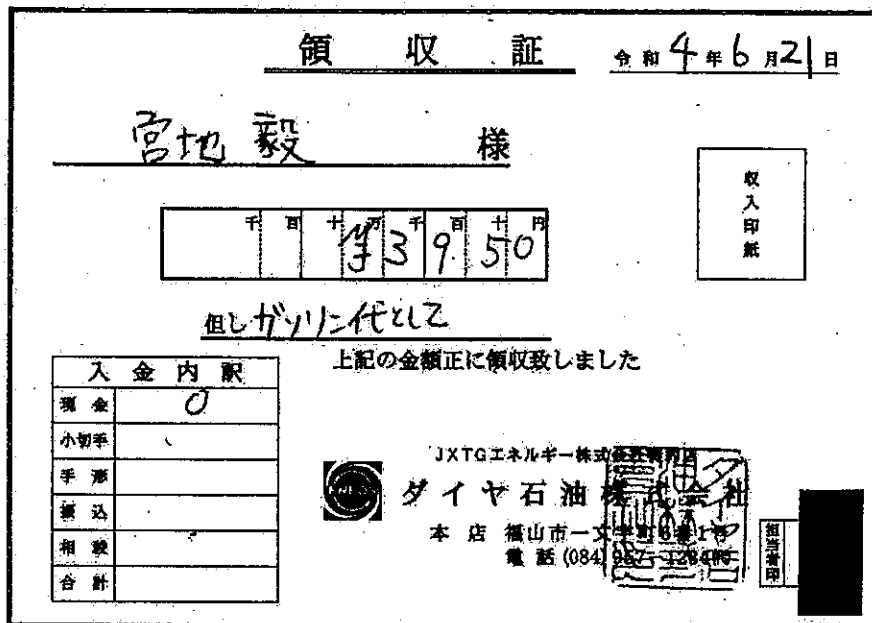 領収証
令和4年6月21日
宮地 毅 様
千百十万千百十円
¥3950
但しガソリン代として
上記の金額正に領収致しました
収入印紙
入金内訳
現金 0
小切手
手形
振込
相殺
合計
JXTGエネルギー株式会社
ダイヤ石油株式会社
本店 福山市一文字町
電話(084)
担当者印